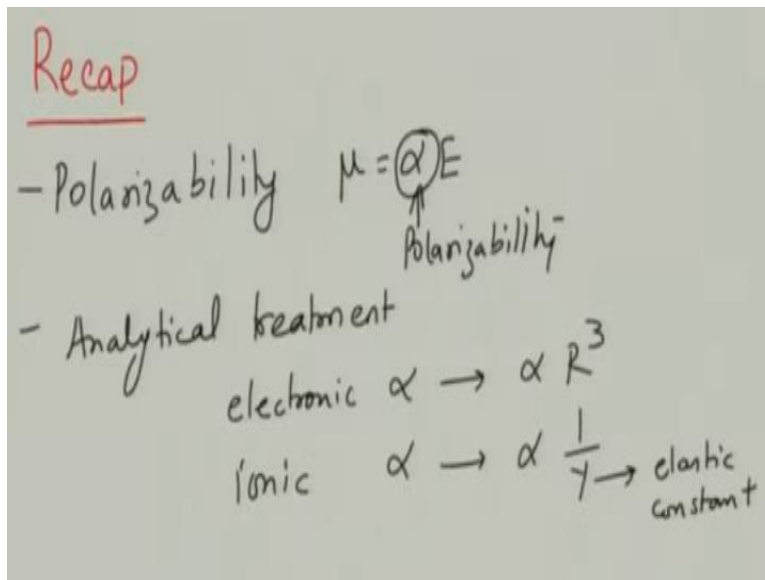 Recap
- Polarizability μ = αE
Polarizability
- Analytical treatment
electronic α → α R³
ionic α → α 1/Y → elastic
constant